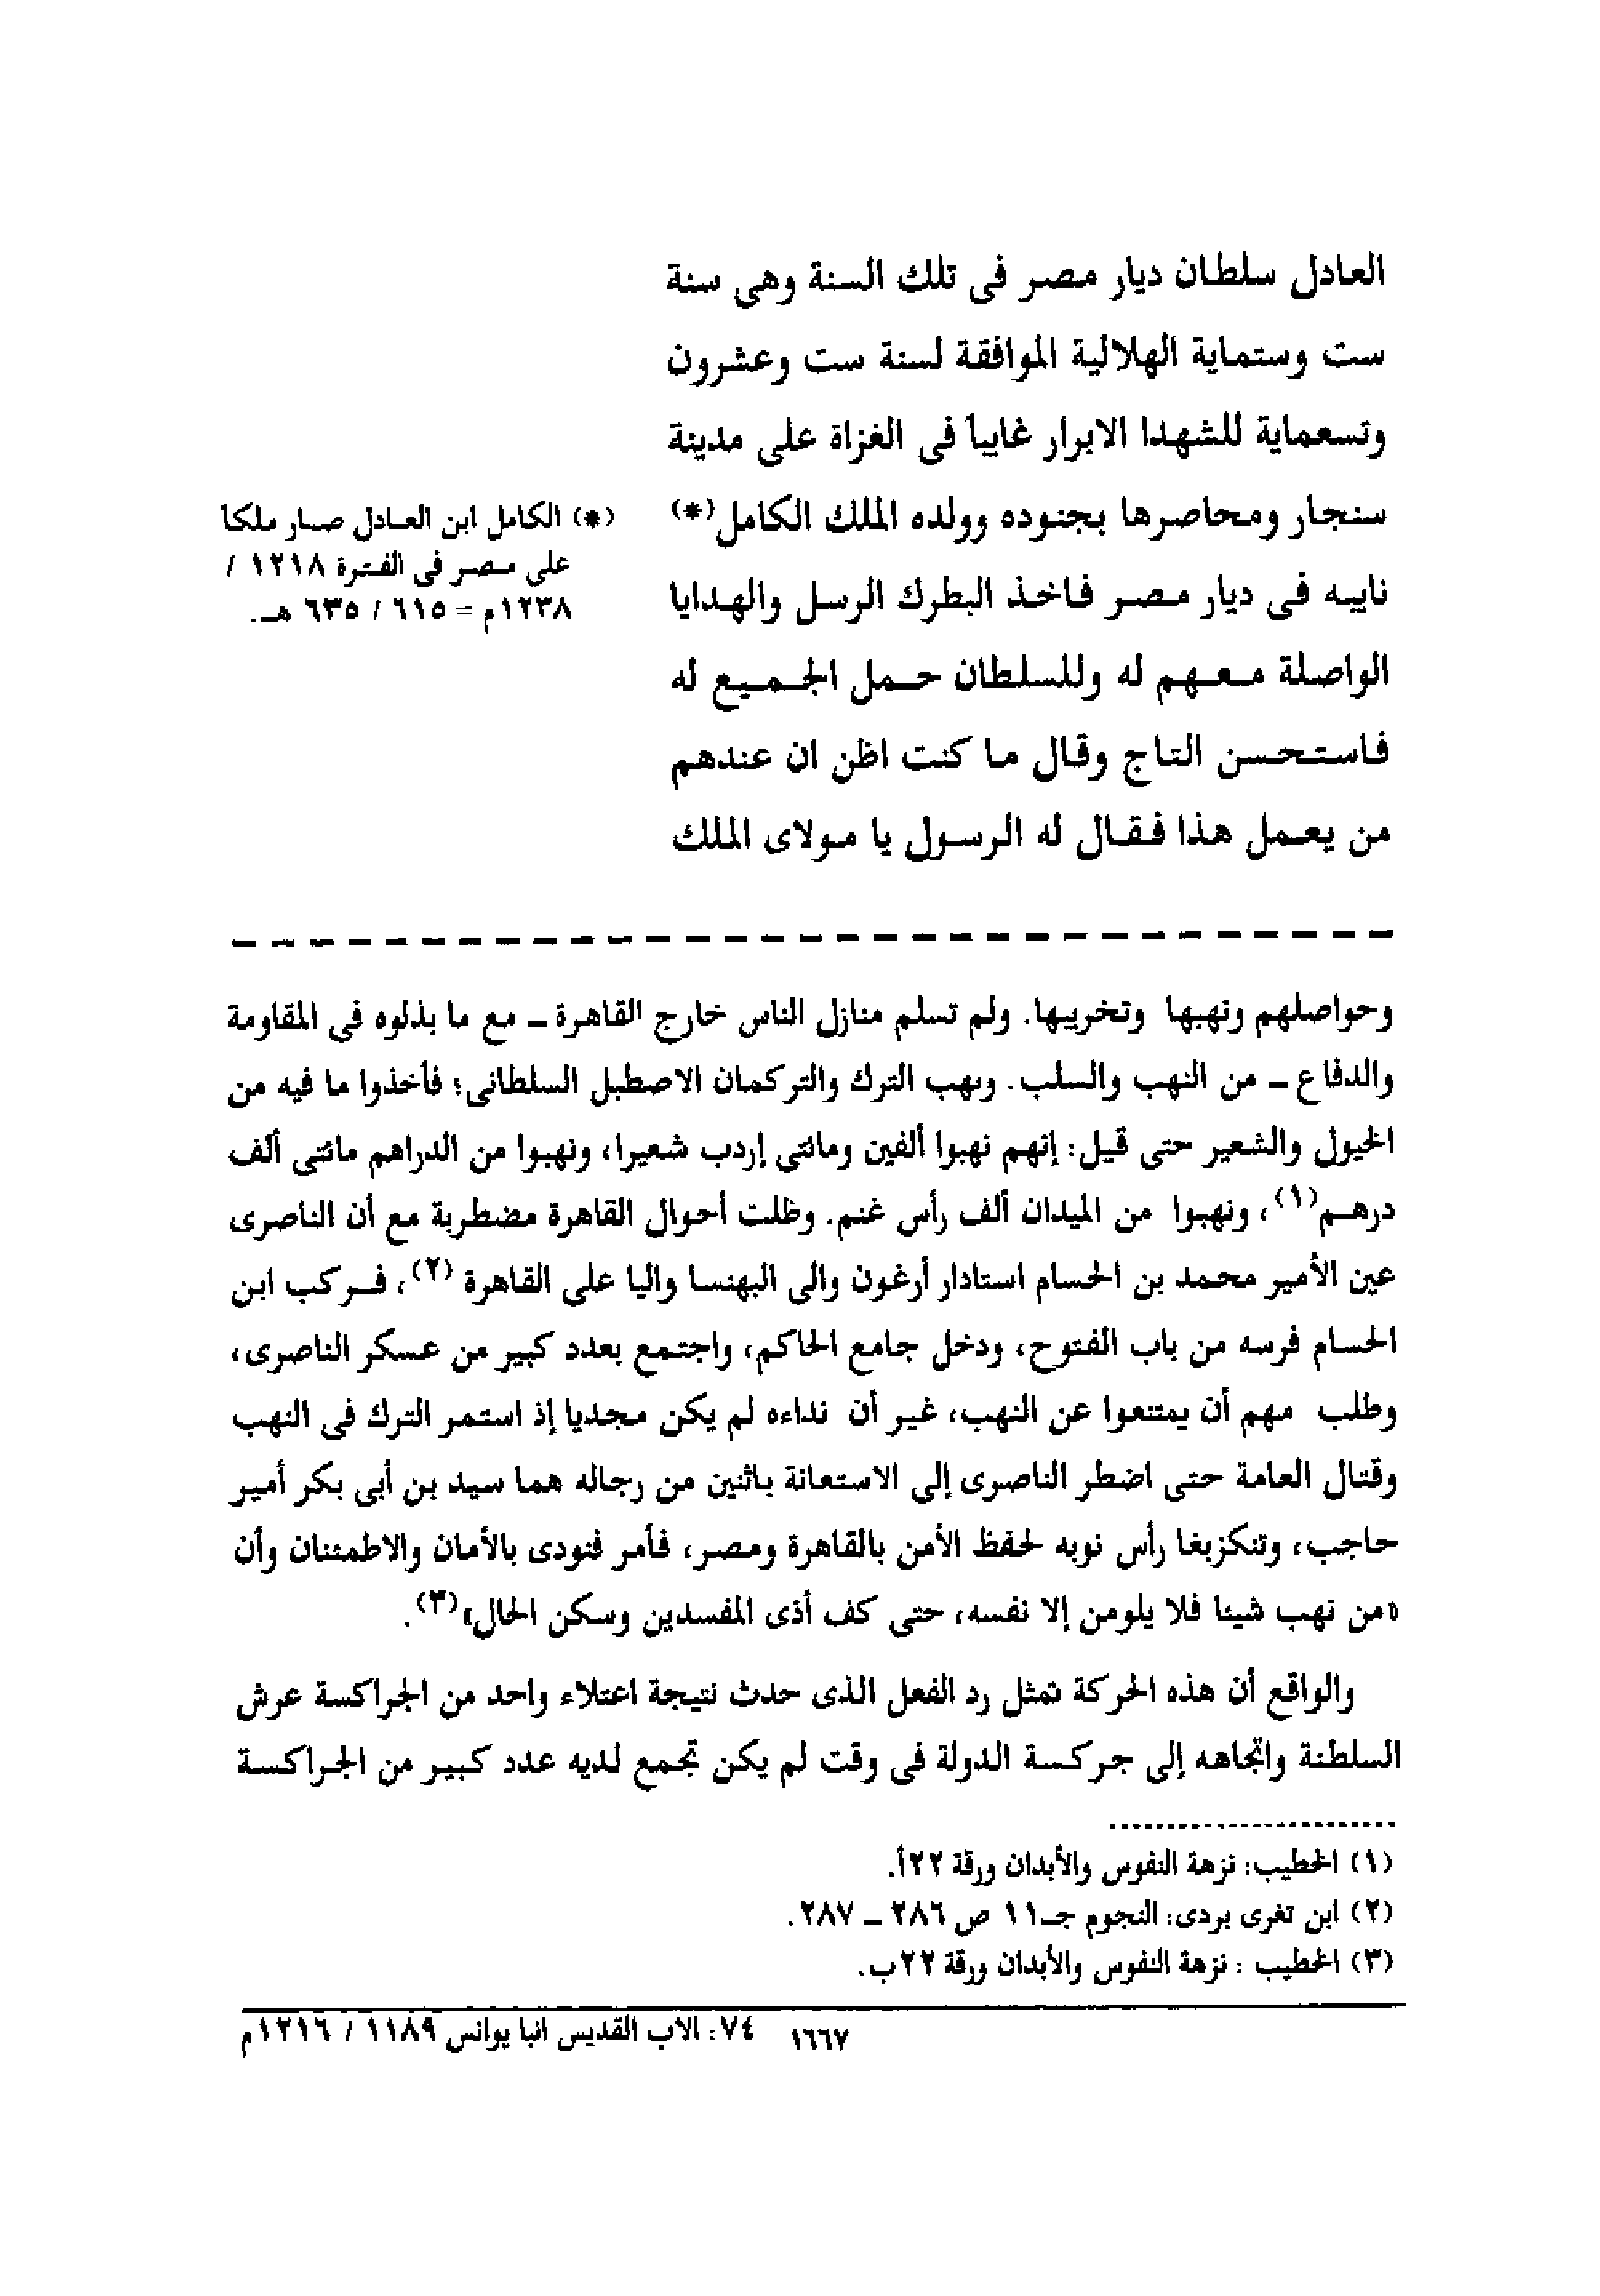 العادل سلطان ديار مصر فى تلك السنة وهى سنة
ست وستماية الهلالية الموافقة لسنة ست وعشرون
وتسعماية للشهدا الابرار غايباً فى الغزاة على مدينة
سنجار ومحاصرها بجنوده وولده الملك الكامل(*)
نايبه فى ديار مصر فاخذ البطرك الرسل والهدايا
الواصلة معهم له وللسلطان حمل الجميع له
فاستحسن التاج وقال ما كنت اظن ان عندهم
من يعمل هذا فقال له الرسول يا مولاى الملك
(*) الكامل ابن العادل صار ملكا
على مصر فى الفترة ١٢١٨ /
١٢٣٨م = ٦١٥ / ٦٣٥ هـ.
وحواصلهم ونهبها وتخريبها. ولم تسلم منازل الناس خارج القاهرة ـ مع ما بذلوه فى المقاومة
والدفاع ـ من النهب والسلب. ونهب الترك والتركمان الاصطبل السلطانى؛ فأخذوا ما فيه من
الخيول والشعير حتى قيل: إنهم نهبوا ألفين ومائتى إردب شعيرا، ونهبوا من الدراهم مائتى ألف
درهم(١)، ونهبوا من الميدان ألف رأس غنم. وظلت أحوال القاهرة مضطربة مع أن الناصرى
عين الأمير محمد بن الحسام استادار أرغون والى البهنسا واليا على القاهرة (٢)، فركب ابن
الحسام فرسه من باب الفتوح، ودخل جامع الحاكم، واجتمع بعدد كبير من عسكر الناصرى،
وطلب مهم أن يمتنعوا عن النهب، غير أن نداءه لم يكن مجديا إذ استمر الترك فى النهب
وقتال العامة حتى اضطر الناصرى إلى الاستعانة باثنين من رجاله هما سيد بن أبى بكر أمير
حاجب، وتنكزبغا رأس نوبه لحفظ الأمن بالقاهرة ومصر، فأمر فنودى بالأمان والاطمئنان وأن
«من نهب شيئا فلا يلومن إلا نفسه، حتى كف أذى المفسدين وسكن الحال»(٣).
والواقع أن هذه الحركة تمثل رد الفعل الذى حدث نتيجة اعتلاء واحد من الجراكسة عرش
السلطنة واتجاهه إلى جركسة الدولة فى وقت لم يكن تجمع لديه عدد كبير من الجراكسة
(١) الخطيب: نزهة النفوس والأبدان ورقة ٢٢أ.
(٢) ابن تغرى بردى: النجوم جـ١١ ص ٢٨٦ ـ ٢٨٧.
(٣) الخطيب : نزهة النفوس والأبدان ورقة ٢٢ب.
١٦٦٧ ٧٤: الاب القديس انبا يوانس ١١٨٩ / ١٢١٦م